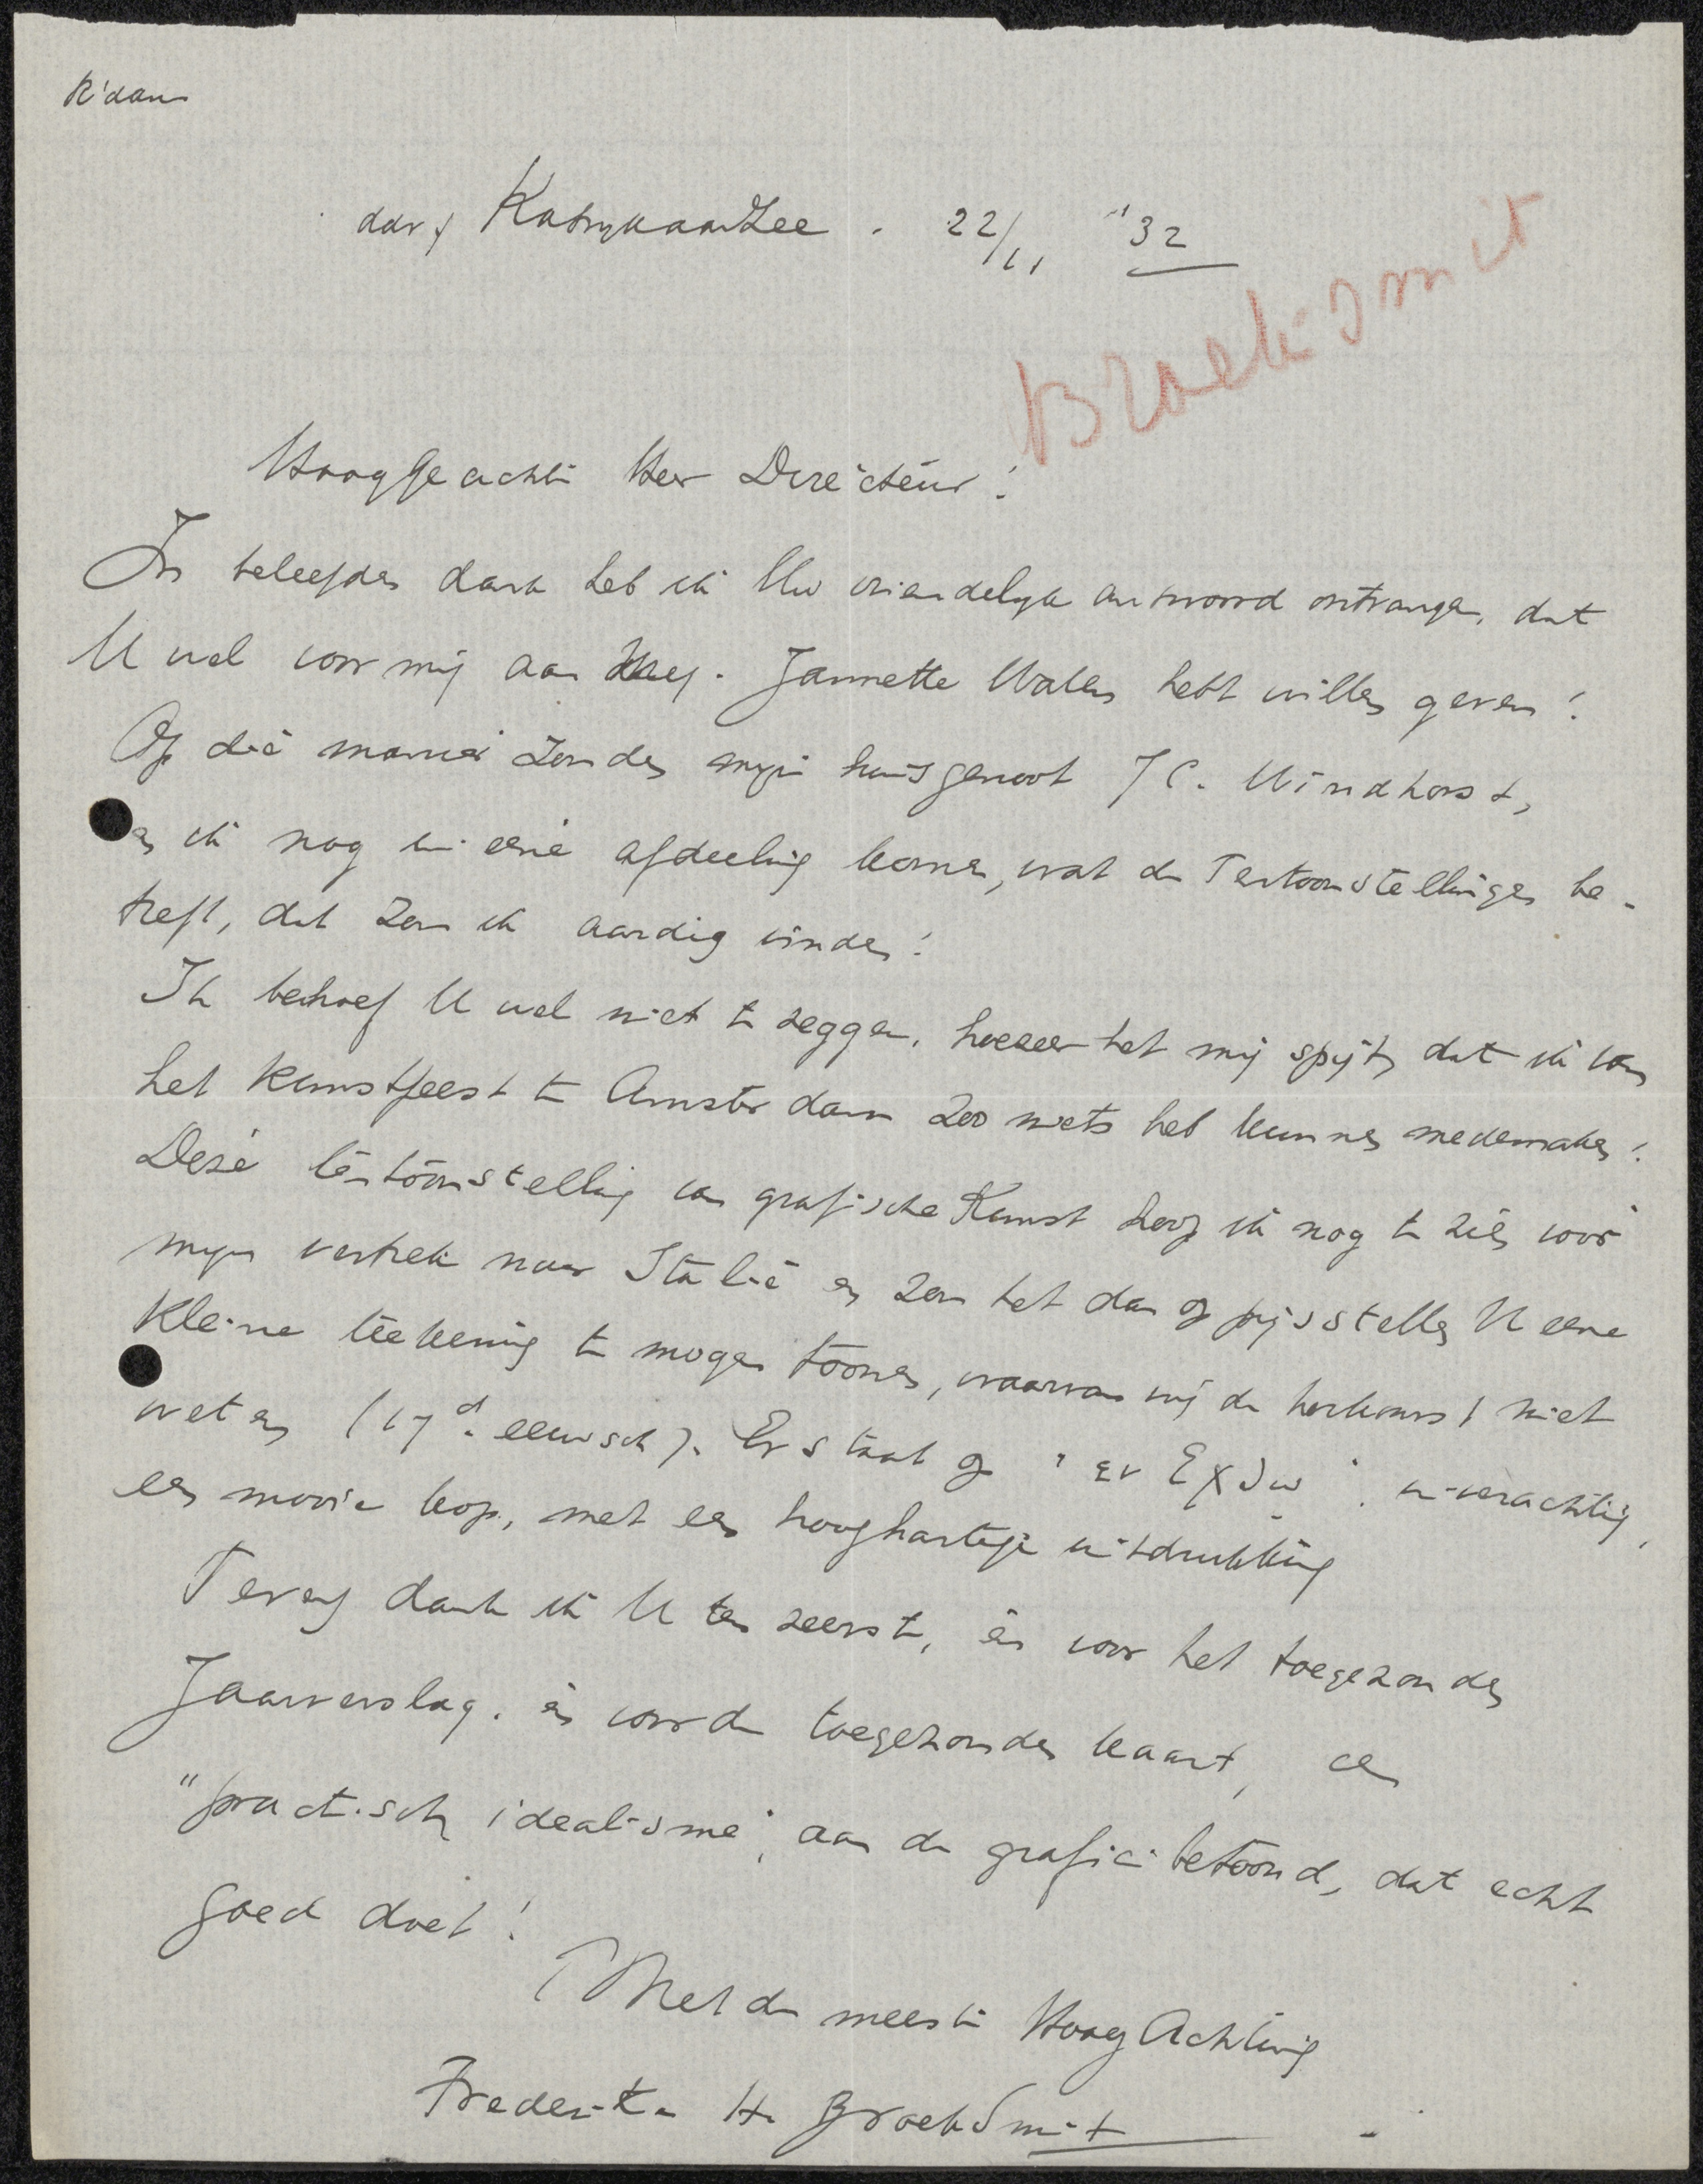 R'dam
Katwyk aan Zee . 22/11 "32
Broeksmit
HoogGeachte Heer Directeur!
In beleefden dank heb ik Uw vriendelyk antwoord ontvangen, dat
U wel voor mij aan Mej. Jannette Walen hebt willen geven!
Op die manier zouden myn huisgenoot J C. Windhorst,
en ik nog in eene afdeeling komen, wat de Tentoonstellingen be-
treft, dat zou ik aardig vinden!
Ik behoef U wel niet te zeggen, hoezeer het mij spijt, dat ik van
het Kunstfeest te Amsterdam zoo niets heb kunnen medemaken!
Deze tentoonstelling van grafische Kunst hoop ik nog te zien voor
myn vertrek naar Italië en zou het dan op prijsstellen U eene
Kleine teekening te mogen toonen, waarvan wij de herkomst niet
weten (17d. eeuwsch). Er staat op
een mooie kop, met een hooghartige uitdrukking
Tevens dank ik U ten zeerste, én voor het toegezonden
Jaarverslag. én voor de toegezonden kaart, een
"practisch idealisme", aan de grafici betoond, dat echt
goed doet!
Met de meeste HoogAchting
Frederika H. BroekSmit